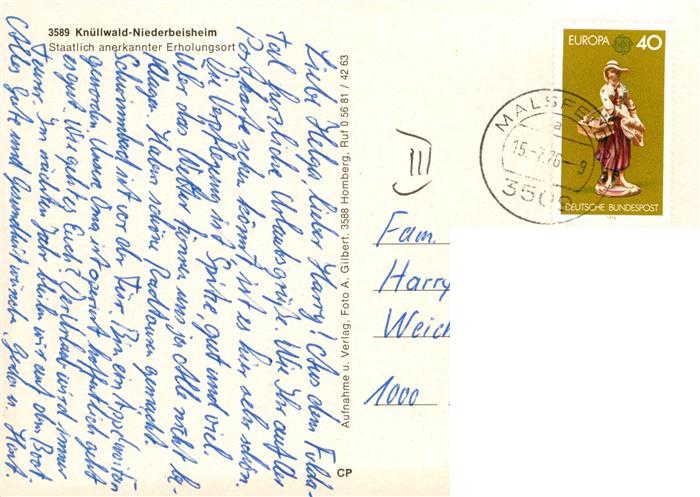 3589 Knüllwald-Niederbeisheim
Staatlich anerkannter Erholungsort
Liebe Helga, lieber Harry! Aus dem Fulda-
tal herzliche Urlaubsgrüße. Wie Ihr auf der
Postkarte sehen könnt ist es hier sehr schön.
Die Verpflegung ist Spitze, gut und viel.
Über das Wetter können uns ja alle nicht be-
klagen. Haben schöne Radtouren gemacht.
Schwimmbad ist vor der Tür. Bin ein
geworden. Unsere Oma ist operiert hoffentlich geht
es gut. Wie geht es Euch? Der Urlaub wird immer
teurer. Im nächsten Jahr bleiben wir auf dem Boot.
Alles Gute und Gesundheit wünschen, u. Horst
Aufnahme u. Verlag, Foto A. Gilbert, 3588 Homberg, Ruf 0 56 81 / 42 63
CP
EUROPA 40
DEUTSCHE BUNDESPOST
1976
MALSFELD
a
15.-7.76-9
3509
Fam.
Harry
Weich
1000